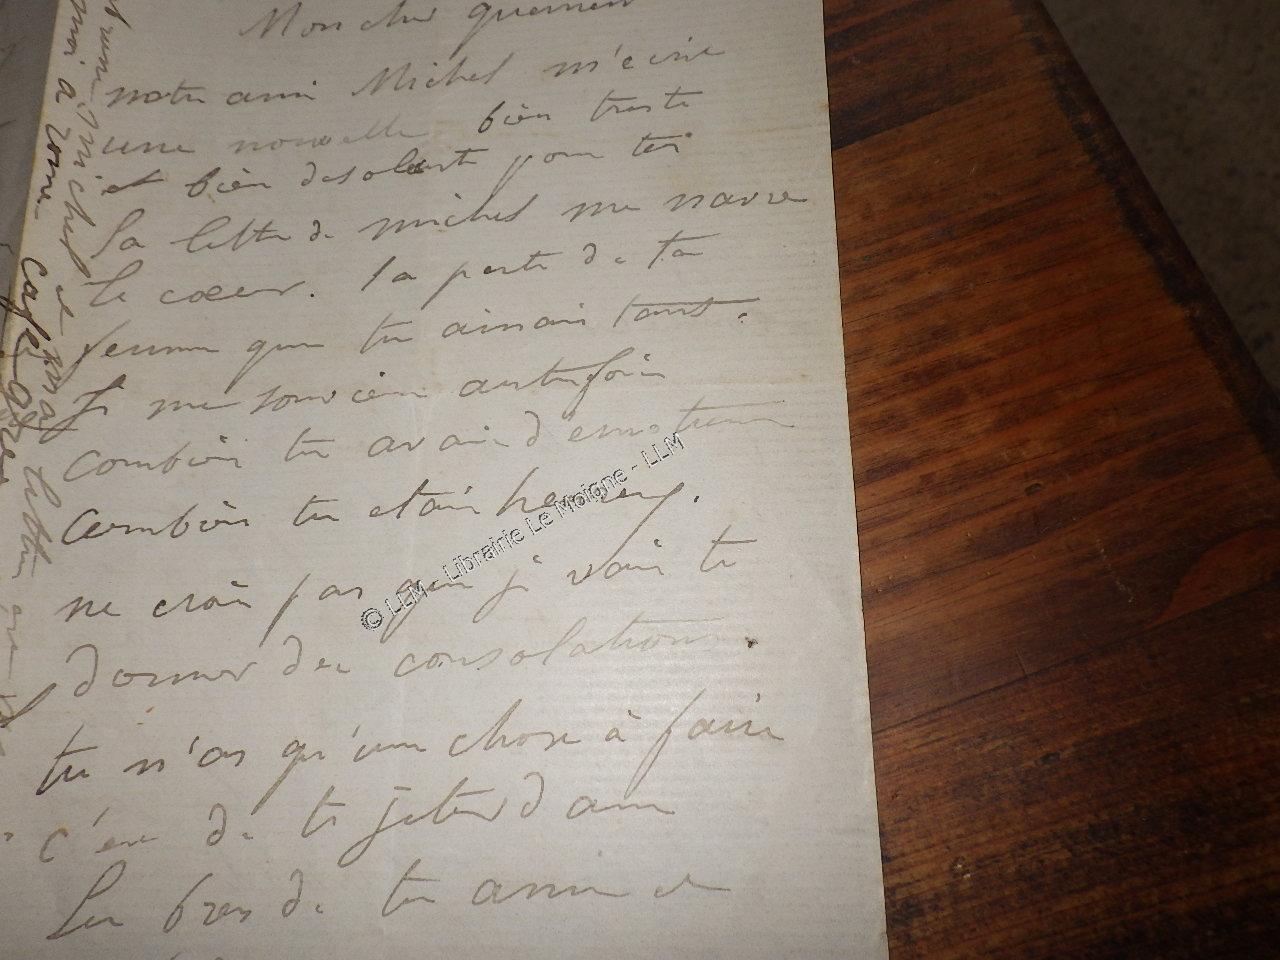 Mon cher
notre ami Michel m'écrit
une nouvelle bien triste
et bien désolante pour toi
la lettre de michel me navre
le coeur. la perte de ta
femme que tu aimais tant.
Je me souviens autrefois
combien tu avais d'emotions
combien tu etais heureux.
ne crois pas que je vais te
donner des consolations.
tu n'as qu'une chose à faire
c'est de te jeter dans
les bras de tes amis et
michel et ma lettre
à Rome café
© LLM - Librairie Le Moigne - LLM